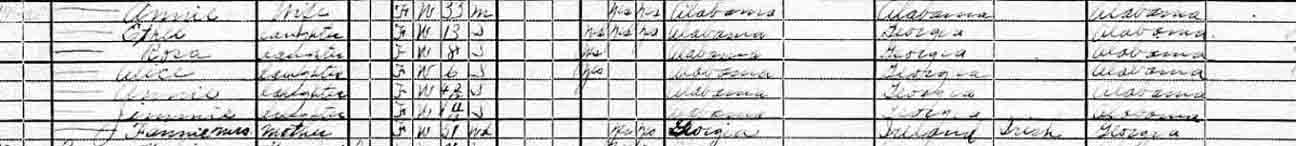 Annie Wife F W 33 M yes yes Alabama Alabama Alabama
Ethel daughter F W 13 S yes yes yes Alabama Georgia Alabama
Rosa daughter F W 8 S yes Alabama Georgia Alabama
Alice daughter F W 6 S yes Alabama Georgia Alabama
Annie daughter F W S Alabama Georgia Alabama
Jimmie daughter F W S Alabama Georgia Alabama
Fannie mrs Mother F W 51 wd yes yes Georgia Ireland Irish Georgia